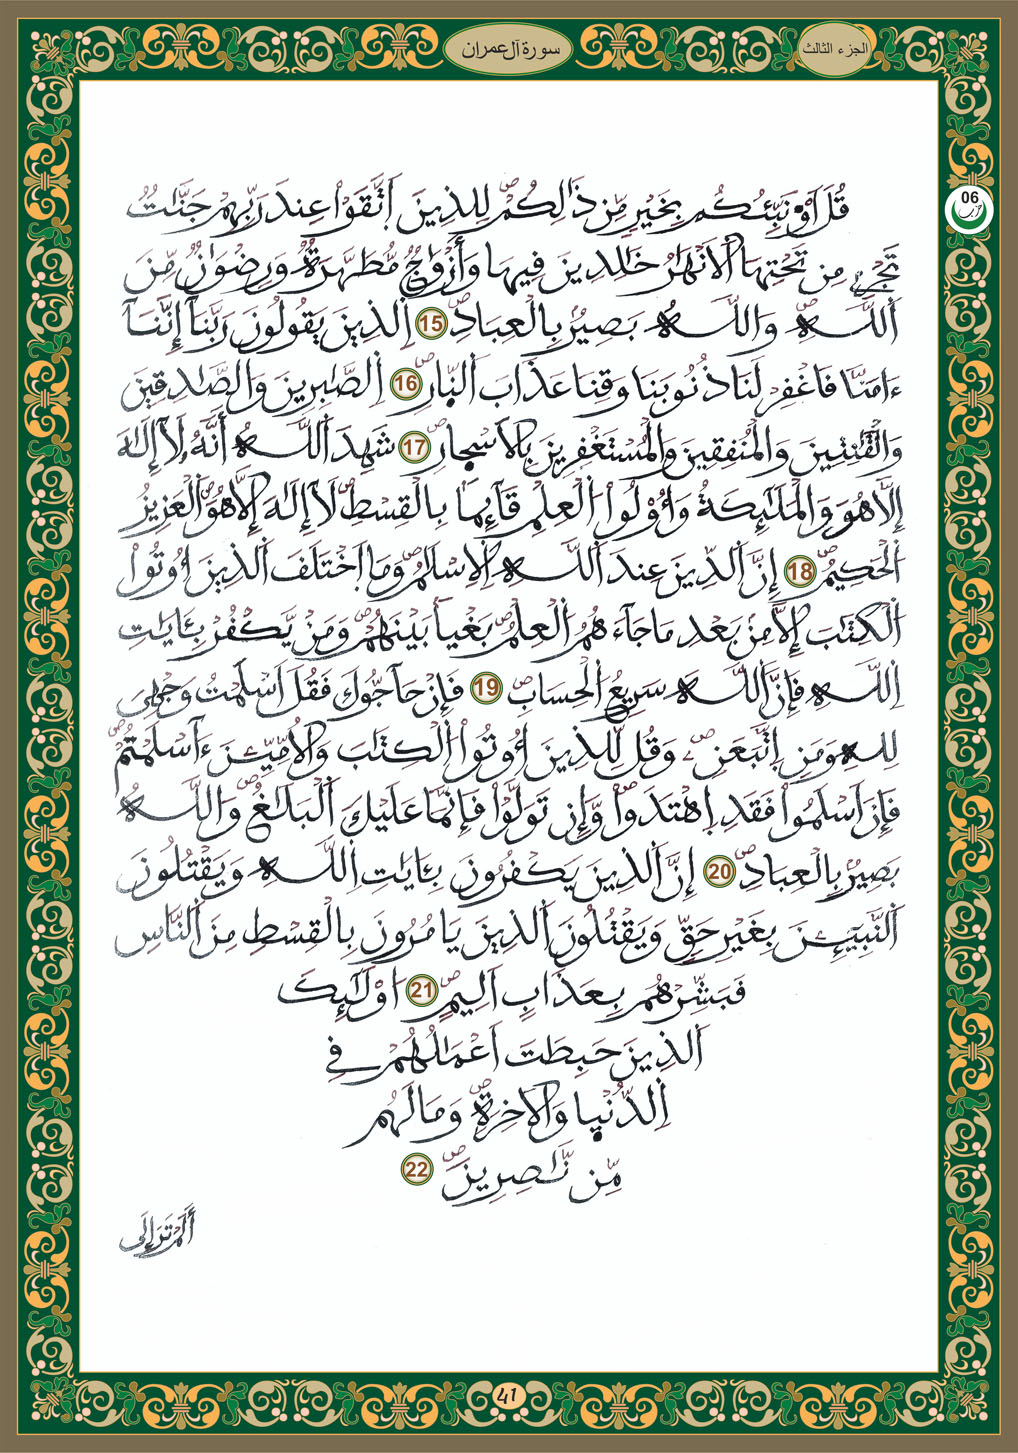 سورة آل عمران
الجزء الثالث
06
قُلَ اَوْ۬نَبِّئُكُم بِخَيْرٍ مِّن ذَٰلِكُمْ لِلذِينَ اَ۪تَّقَوْا عِندَ رَبِّهِمْ جَنَّٰتٌ
تَجْرِے مِن تَحْتِهَا اَ۬لَانْهَٰرُ خَٰلِدِينَ فِيهَا وَأَزْوَٰجٌ مُّطَهَّرَةٌ وَرِضْوَٰنٌ مِّنَ
اَ۬للَّهِ وَاللَّهُ بَصِيرٌ بِالْعِبَادِ 15 اِ۬لذِينَ يَقُولُونَ رَبَّنَآ إِنَّنَآ
ءَامَنَّا فَاغْفِرْ لَنَا ذُنُوبَنَا وَقِنَا عَذَابَ اَ۬لنّ۪ارِ 16 اِ۬لصَّٰبِرِينَ وَالصَّٰدِقِينَ
وَالْقَٰنِتِينَ وَالْمُنفِقِينَ وَالْمُسْتَغْفِرِينَ بِالَاسْح۪ارِ 17 شَهِدَ اَ۬للَّهُ أَنَّهُۥ لَآ إِلَٰهَ
إِلَّا هُوَ وَالْمَلَٰٓئِكَةُ وَأُوْلُواْ اُ۬لْعِلْمِ قَآئِماً بِالْقِسْطِ لَآ إِلَٰهَ إِلَّا هُوَ اَ۬لْعَزِيزُ
اُ۬لْحَكِيمُ 18 إِنَّ اَ۬لدِّينَ عِندَ اَ۬للَّهِ اِ۬لِاسْلَٰمُ وَمَا اَ۪خْتَلَفَ اَ۬لذِينَ أُوتُواْ
اُ۬لْكِتَٰبَ إِلَّا مِنۢ بَعْدِ مَا جَآءَهُمُ اُ۬لْعِلْمُ بَغْياَۢ بَيْنَهُمْ وَمَنْ يَّكْفُرْ بِـَٔايَٰتِ
اِ۬للَّهِ فَإِنَّ اَ۬للَّهَ سَرِيعُ اُ۬لْحِسَابِ 19 فَإِنْ حَآجُّوكَ فَقُلَ اَسْلَمْتُ وَجْهِيَ
لِلهِ وَمَنِ اِ۪تَّبَعَنِۦ وَقُل لِّلذِينَ أُوتُواْ اُ۬لْكِتَٰبَ وَالُامِّيِّـۧنَ ءَآسْلَمْتُمْ
فَإِنَ اَسْلَمُواْ فَقَدِ اِ۪هْتَدَواْ وَّإِن تَوَلَّوْاْ فَإِنَّمَا عَلَيْكَ اَ۬لْبَلَٰغُ وَاللَّهُ
بَصِيرٌ بِالْعِبَادِ 20 إِنَّ اَ۬لذِينَ يَكْفُرُونَ بِـَٔايَٰتِ اِ۬للَّهِ وَيَقْتُلُونَ
اَ۬لنَّبِيٓـِٕۧنَ بِغَيْرِ حَقٍّ وَيَقْتُلُونَ اَ۬لذِينَ يَامُرُونَ بِالْقِسْطِ مِنَ اَ۬لنَّاسِ
فَبَشِّرْهُم بِعَذَابٍ اَلِيمٍ 21 اُوْلَٰٓئِكَ
اَ۬لذِينَ حَبِطَتَ اَعْمَٰلُهُمْ فِے
اِ۬لدُّنْي۪ا وَالَاخِرَةِ وَمَا لَهُم
مِّن نَّٰصِرِينَ 22
أَلَمْ تَرَ إِلَى
41